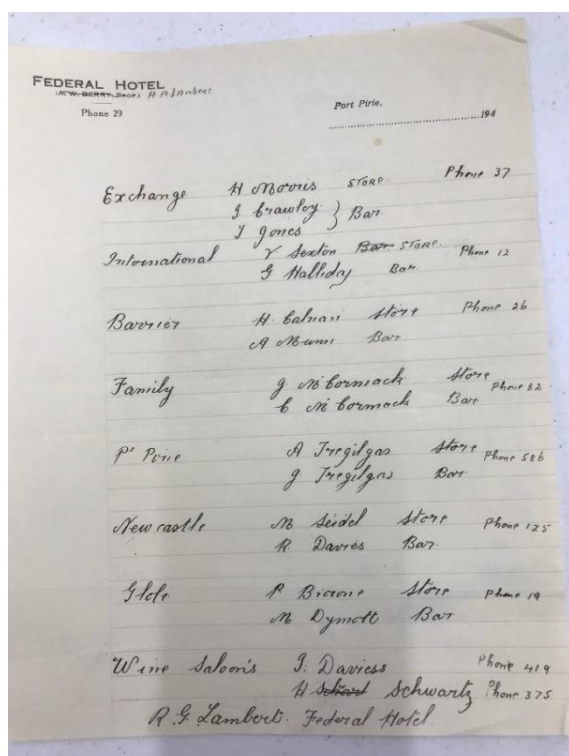 FEDERAL HOTEL
(M.W. BERRY, PROP.) R.G. Lambert
Phone 29
Port Pirie,
194
Exchange H Morris STORE Phone 37
J Crawley } Bar
J Jones
International V Sexton Bar STORE Phone 12
G Halliday Bar
Barrier H. Calnan Store Phone 26
A Munn Bar
Family J McCormack Store Phone 82
C McCormack Bar
Pt Pirie A Tregilgas Store Phone 586
J Tregilgas Bar
Newcastle M Seidel Store Phone 125
R. Davies Bar
Globe P Browne Store Phone 19
M Dymott Bar
Wine Saloon's J. Daviess Phone 419
H Schwartz Phone 375
R.G. Lambert. Federal Hotel